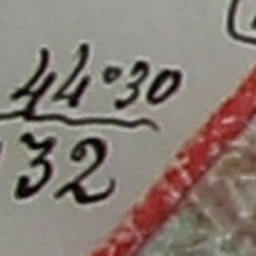 44°30
132